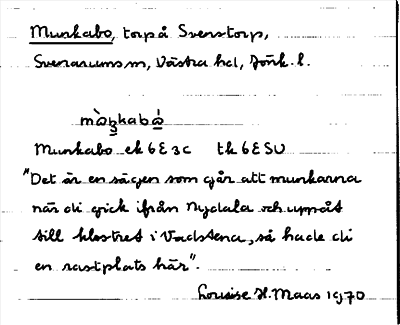 Munkabo, torp å Svenstorp,
Svenarums sn, Västra hd, Jönk. l.
Munkabo ek 6E3c tk 6ESV
"Det är en sägen som går att munkarna
när di gick ifrån Nydala och uppåt
till klostret i Vadstena, så hade di
en rastplats här".
Louise H. Maas 1970